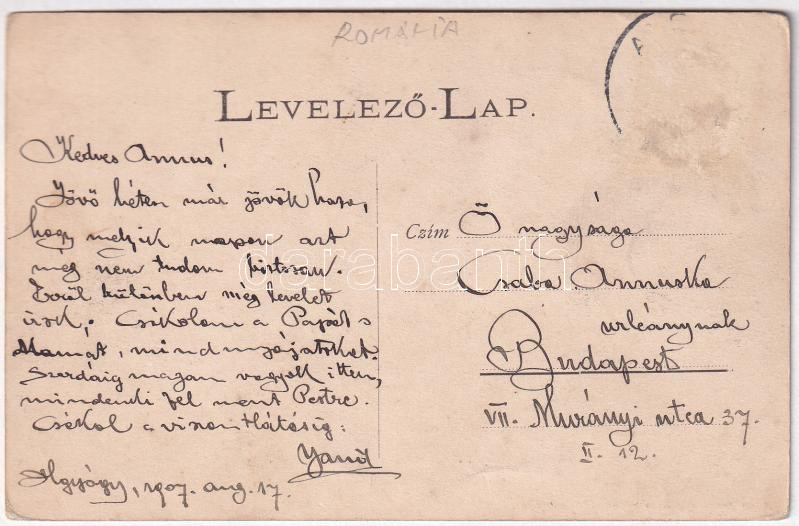 ROMÁNIA
LEVELEZŐ-LAP.
Kedves Annus!
Jövő héten már jövök haza,
hogy melyik napon azt
még nem tudom biztosan.
Erről különben még levelet
írok. Csókolom a Papát s
Mamát, mindnyájatokat.
Szerdáig magam vagyok itten,
mindenki fel ment Pestre.
Csókol a viszontlátásig:
Algyógy, 1907. aug. 17.
Czím Ő nagysága
Csaba Annuska
urleánynak
Budapest
VII. Murányi utca 37.
II. 12.
darabanth